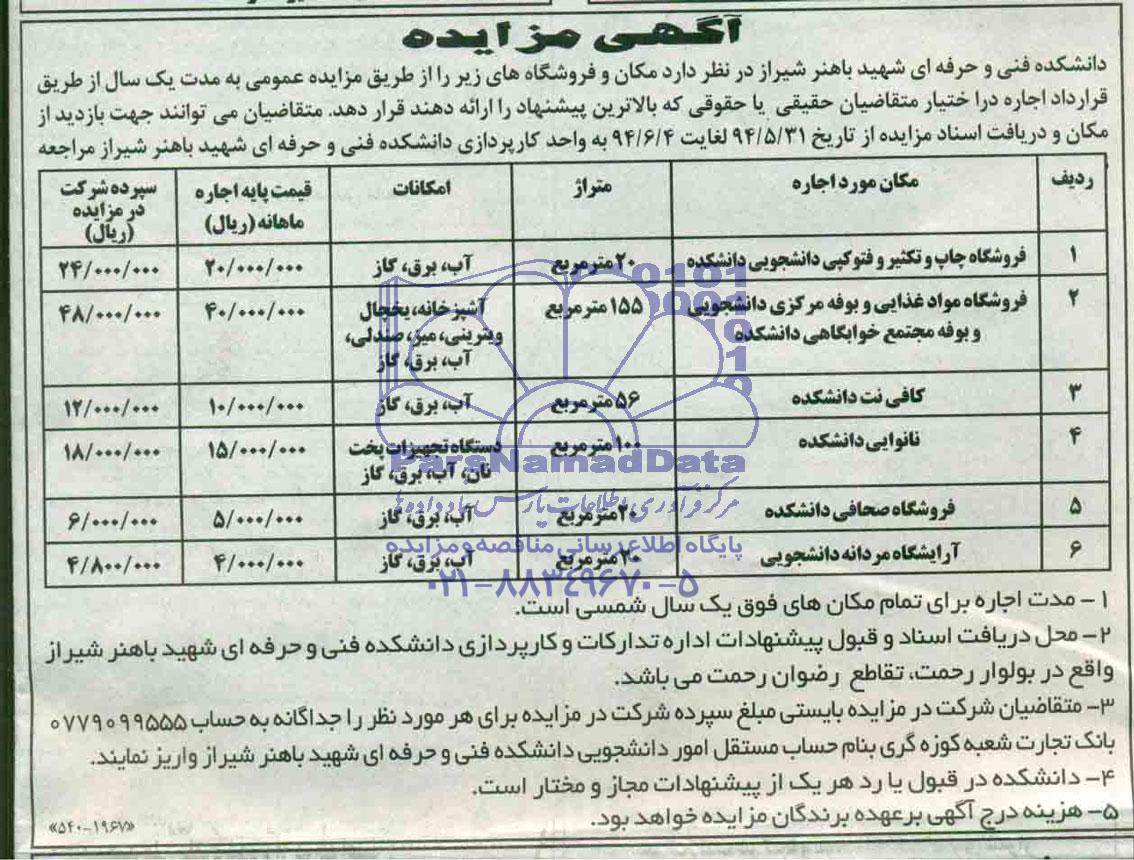 آگهی مزایده
دانشکده فنی و حرفه ای شهید باهنر شیراز در نظر دارد مکان و فروشگاه های زیر را از طریق مزایده عمومی به مدت یک سال از طریق
قرارداد اجاره درا ختیار متقاضیان حقیقی یا حقوقی که بالاترین پیشنهاد را ارائه دهند قرار دهد. متقاضیان می توانند جهت بازدید از
مکان و دریافت اسناد مزایده از تاریخ ۹۴/۵/۳۱ لغایت ۹۴/۶/۴ به واحد کارپردازی دانشکده فنی و حرفه ای شهید باهنر شیراز مراجعه
ردیف مکان مورد اجاره متراژ امکانات قیمت پایه اجاره ماهانه (ریال) سپرده شرکت در مزایده (ریال)
۱ فروشگاه چاپ و تکثیر و فتوکپی دانشجویی دانشکده ۲۰ مترمربع آب، برق، گاز ۲۰/۰۰۰/۰۰۰ ۲۴/۰۰۰/۰۰۰
۲ فروشگاه مواد غذایی و بوفه مرکزی دانشجویی ۱۵۵ مترمربع آشپزخانه، یخچال ۴۰/۰۰۰/۰۰۰ ۴۸/۰۰۰/۰۰۰
و بوفه مجتمع خوابگاهی دانشکده ویترینی، میز، صندلی،
آب، برق، گاز
۳ کافی نت دانشکده ۵۶ مترمربع آب، برق، گاز ۱۰/۰۰۰/۰۰۰ ۱۲/۰۰۰/۰۰۰
۴ نانوایی دانشکده ۱۰۰ مترمربع دستگاه تجهیزات پخت ۱۵/۰۰۰/۰۰۰ ۱۸/۰۰۰/۰۰۰
نان، آب، برق، گاز
۵ فروشگاه صحافی دانشکده ۲۰ مترمربع آب، برق، گاز ۵/۰۰۰/۰۰۰ ۶/۰۰۰/۰۰۰
۶ آرایشگاه مردانه دانشجویی ۲۰ مترمربع آب، برق، گاز ۴/۰۰۰/۰۰۰ ۴/۸۰۰/۰۰۰
ParsNamadData
مرکز فرآوری اطلاعات پارس نماد داده ها
پایگاه اطلاع رسانی مناقصه و مزایده
۰۲۱-۸۸۳۴۹۶۷۰-۵
۱- مدت اجاره برای تمام مکان های فوق یک سال شمسی است.
۲- محل دریافت اسناد و قبول پیشنهادات اداره تدارکات و کارپردازی دانشکده فنی و حرفه ای شهید باهنر شیراز
واقع در بولوار رحمت، تقاطع رضوان رحمت می باشد.
۳- متقاضیان شرکت در مزایده بایستی مبلغ سپرده شرکت در مزایده برای هر مورد نظر را جداگانه به حساب ۰۷۷۹۰۹۹۵۵۵
بانک تجارت شعبه کوزه گری بنام حساب مستقل امور دانشجویی دانشکده فنی و حرفه ای شهید باهنر شیراز واریز نمایند.
۴- دانشکده در قبول یا رد هر یک از پیشنهادات مجاز و مختار است.
۵- هزینه درج آگهی برعهده برندگان مزایده خواهد بود.
«۵۴۰-۱۹۶۷»